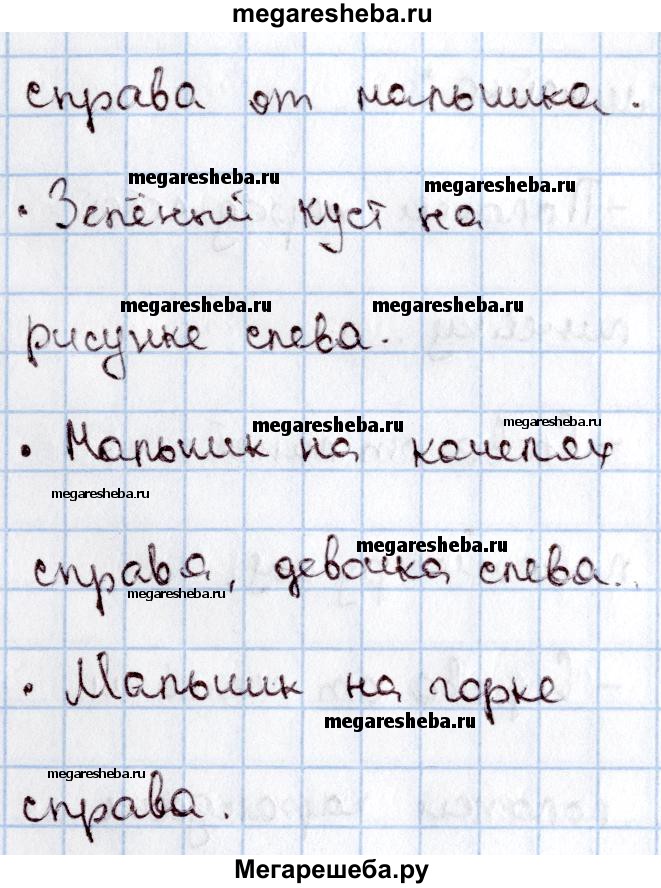 megaresheba.ru
справа от мальчика.
megaresheba.ru
megaresheba.ru
• Зелёный куст на
megaresheba.ru
megaresheba.ru
рисунке слева.
megaresheba.ru
megaresheba.ru
• Мальчик на качелях
megaresheba.ru
megaresheba.ru
справа, девочка слева.
megaresheba.ru
• Мальчик на горке
megaresheba.ru
megaresheba.ru
справа.
Мегарешеба.ру